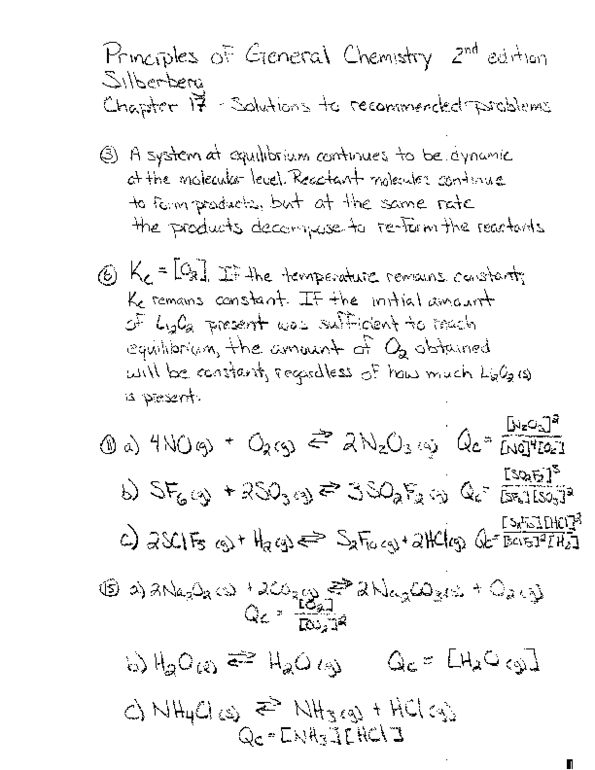 Principles of General Chemistry 2nd edition
Silberberg
Chapter 17 - Solutions to recommended problems
③ A system at equilibrium continues to be dynamic
at the molecular level. Reactant molecules continue
to form products, but at the same rate
the products decompose to re-form the reactants
⑥ Kc = [O2]. If the temperature remains constant,
Kc remains constant. If the initial amount
of Li2O2 present was sufficient to reach
equilibrium, the amount of O2 obtained
will be constant, regardless of how much Li2O2(s)
is present.
⑪ a) 4NO(g) + O2(g) ⇌ 2N2O3(g) Qc = [N2O3]^2 / [NO]^4[O2]
b) SF6(g) + 2SO3(g) ⇌ 3SO2F2(g) Qc = [SO2F2]^3 / [SF6][SO3]^2
c) 2SClF5(g) + H2(g) ⇌ S2F10(g) + 2HCl(g) Qc = [S2F10][HCl]^2 / [SClF5]^2[H2]
⑮ a) 2Na2O2(s) + 2CO2(g) ⇌ 2Na2CO3(s) + O2(g)
Qc = [O2] / [CO2]^2
b) H2O(l) ⇌ H2O(g) Qc = [H2O(g)]
c) NH4Cl(s) ⇌ NH3(g) + HCl(g)
Qc = [NH3][HCl]